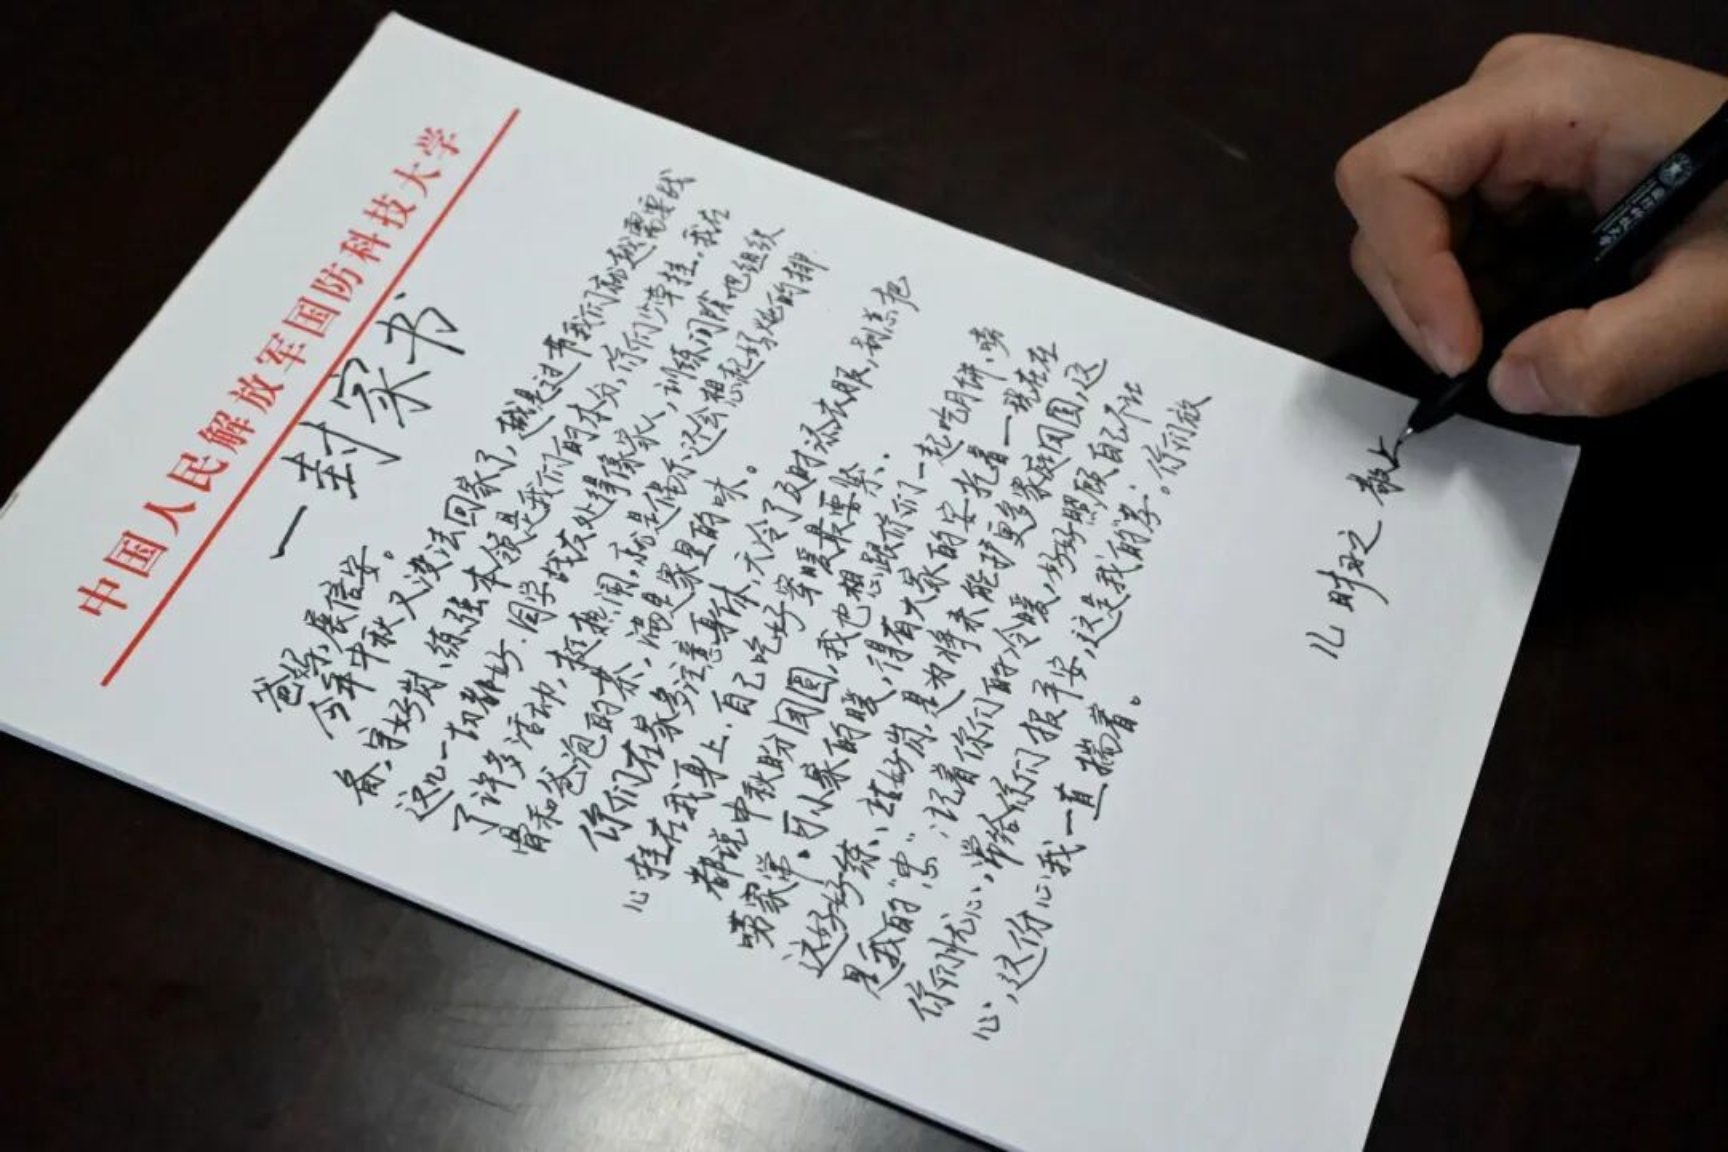 中国人民解放军国防科技大学
一封家书
爸妈：展信安。
今年中秋又没法回家了，越是过节我们就越需要战
备，守好岗、练强本领是我们的本分，你们少牵挂。我在
这儿一切都好，同学战友处得像家人，训练间隙吧组织
了许多活动，挺热闹，就是偶尔还会想起妈炖的排
骨和爸泡的茶，满是家里的味。
你们在家多注意身体，天冷了及时添衣服，别总把
心挂在我身上，自己吃好穿暖最要紧。
都说中秋盼团圆，我也想跟你们一起吃月饼、唠
唠家常。可小家的暖，得有大家的安托着——我在
这好好练、站好岗，是为将来能护更多家庭团圆，这
是我的“忠”；记着你们的冷暖，好好照顾自己不让
你们忧心，常给你们报平安，这是我的孝。你们放
心，这份心我一直揣着。
儿 敬上